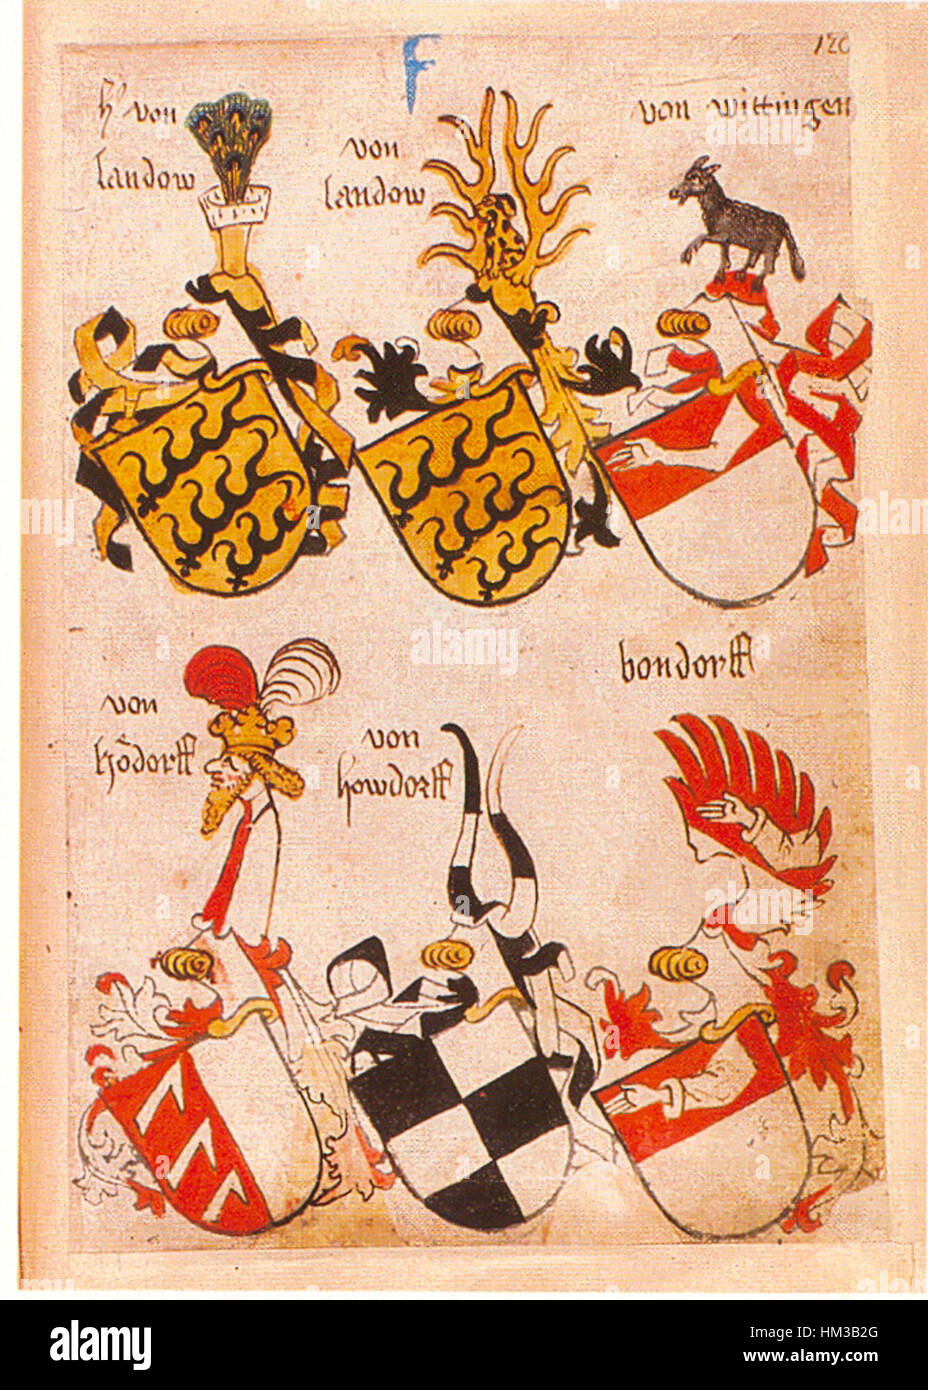 F
120
h' von
landow
von
landow
von wittingen
von
hŏdorff
von
howdorff
bondorff
alamy
Image ID: HM3B2G
www.alamy.com